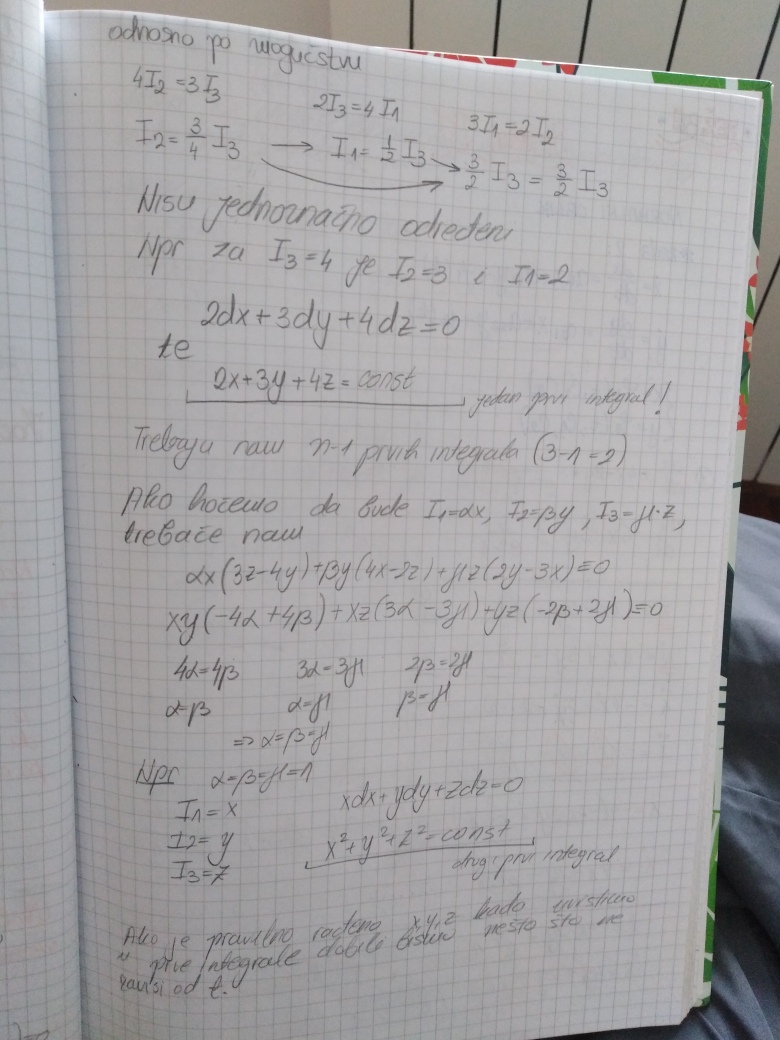 odnosno po mogućstvu
4I₂=3I₃ 2I₃=4I₁ 3I₁=2I₂
I₂=3/4 I₃ → I₁=1/2 I₃ → 3/2 I₃ = 3/2 I₃
Nisu jednoznačno određeni
Npr za I₃=4 je I₂=3 i I₁=2
2dx+3dy+4dz=0
te
2x+3y+4z=const
jedan prvi integral!
Trebaju nam n-1 prvih integrala (3-1=2)
Ako hoćemo da bude I₁=αx, I₂=βy, I₃=μ·z,
trebaće nam
αx(3z-4y)+βy(4x-2z)+μz(2y-3x)=0
xy(-4α+4β)+xz(3α-3μ)+yz(-2β+2μ)=0
4α=4β 3α=3μ 2β=2μ
α=β α=μ β=μ
⇒ α=β=μ
Npr α=β=μ=1
I₁=x xdx+ydy+zdz=0
I₂=y x²+y²+z²=const
I₃=z drugi prvi integral
Ako je pravilno rađeno x,y,z kada uvrstimo
u prve integrale dobili bismo nešto što ne
zavisi od t.